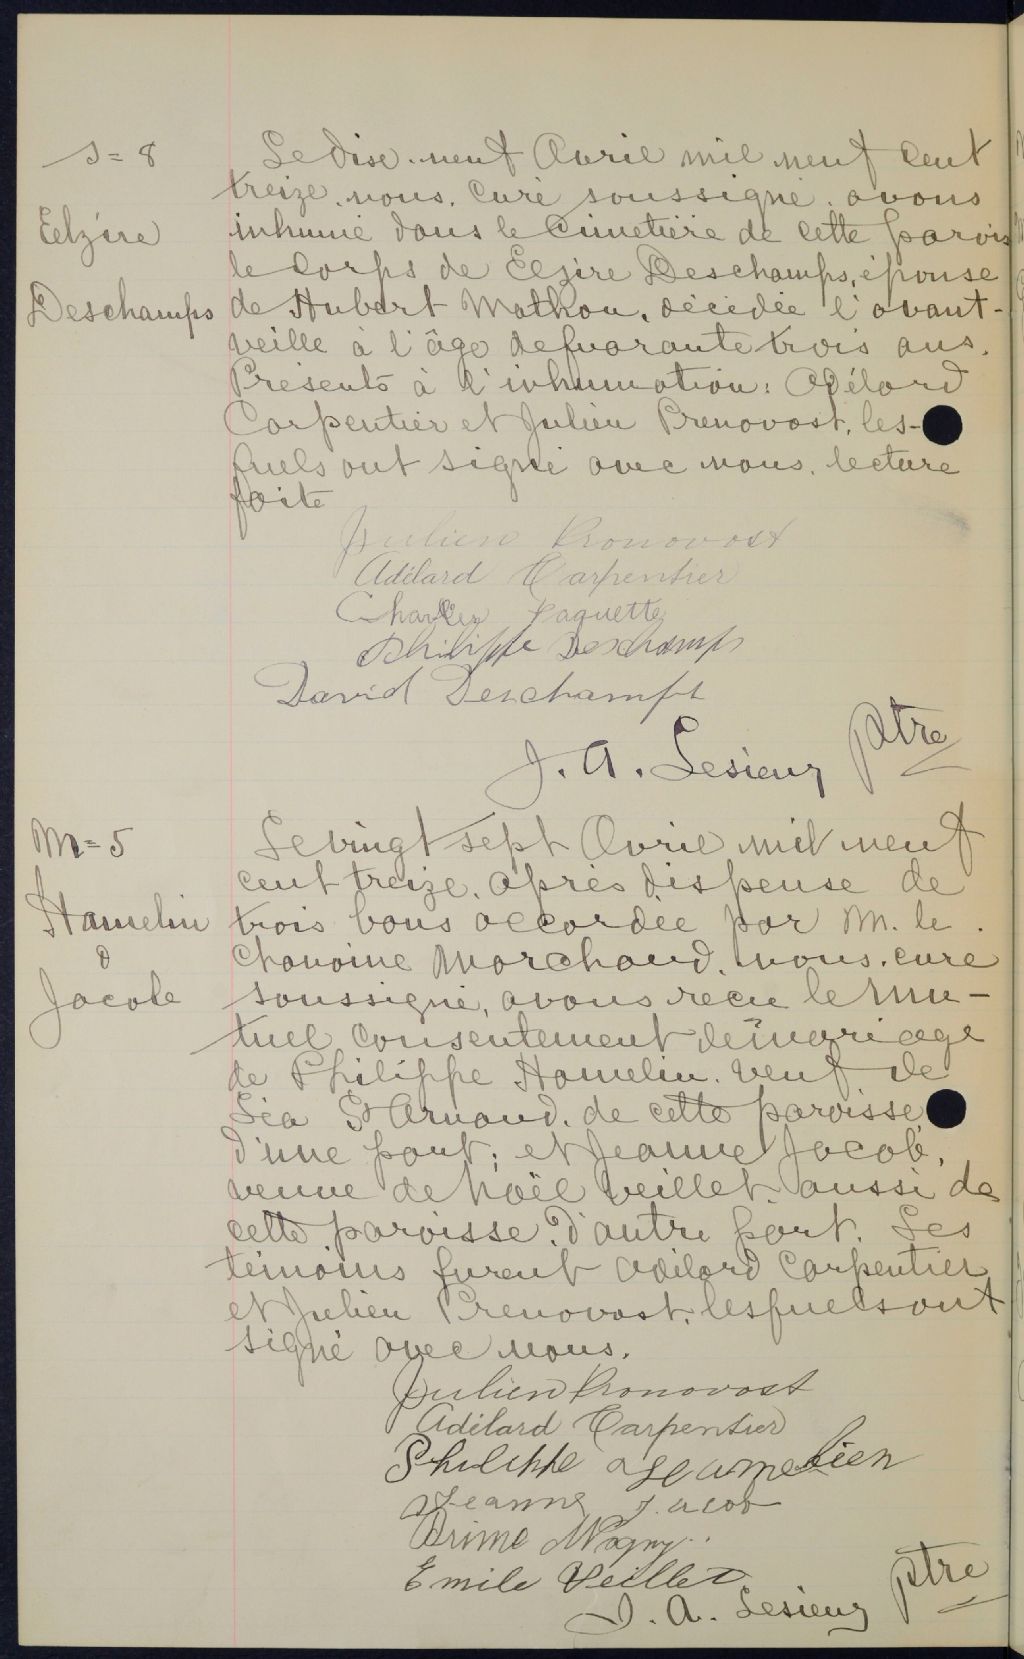 S=8
Le dise-neuf Avril mil neuf cent
treize, nous, curé soussigné, avons
Eelzire
inhumé dans le cimetière de cette parois
le corps de Elzire Deschamps, épouse
Deschamps
de Hubert Mathon, décédée l'avant-
veille à l'âge de quarante trois ans.
Présents à l'inhumation: Adélard
Carpentier et Julien Prenovost, les-
quels ont signé avec nous. lecture
faite
Julien Pronovost
Adélard Carpentier
Charles Paquette
Philippe Deschamps
David Deschamps
J. A. Lesieur ptre
M=5
Le vingt sept Avril mil neuf
cent treize, après dispense de
Hamelin
trois bans accordée par M. le
&
chanoine Marchand, nous, curé
Jacob
soussigné, avons reçu le mu-
tuel consentement de mariage
de Philippe Hamelin, veuf de
Léa St Arnaud, de cette paroisse,
d'une part; et Jeanne Jacob,
veuve de Noël Veillet, aussi de
cette paroisse, d'autre part. Les
témoins furent Adélard Carpentier
et Julien Prenovost, lesquels ont
signé avec nous.
Julien Pronovost
Adélard Carpentier
Philippe Hamelien
Jeanne Jacob
Prime
Emile Veillet
J. A. Lesieur ptre